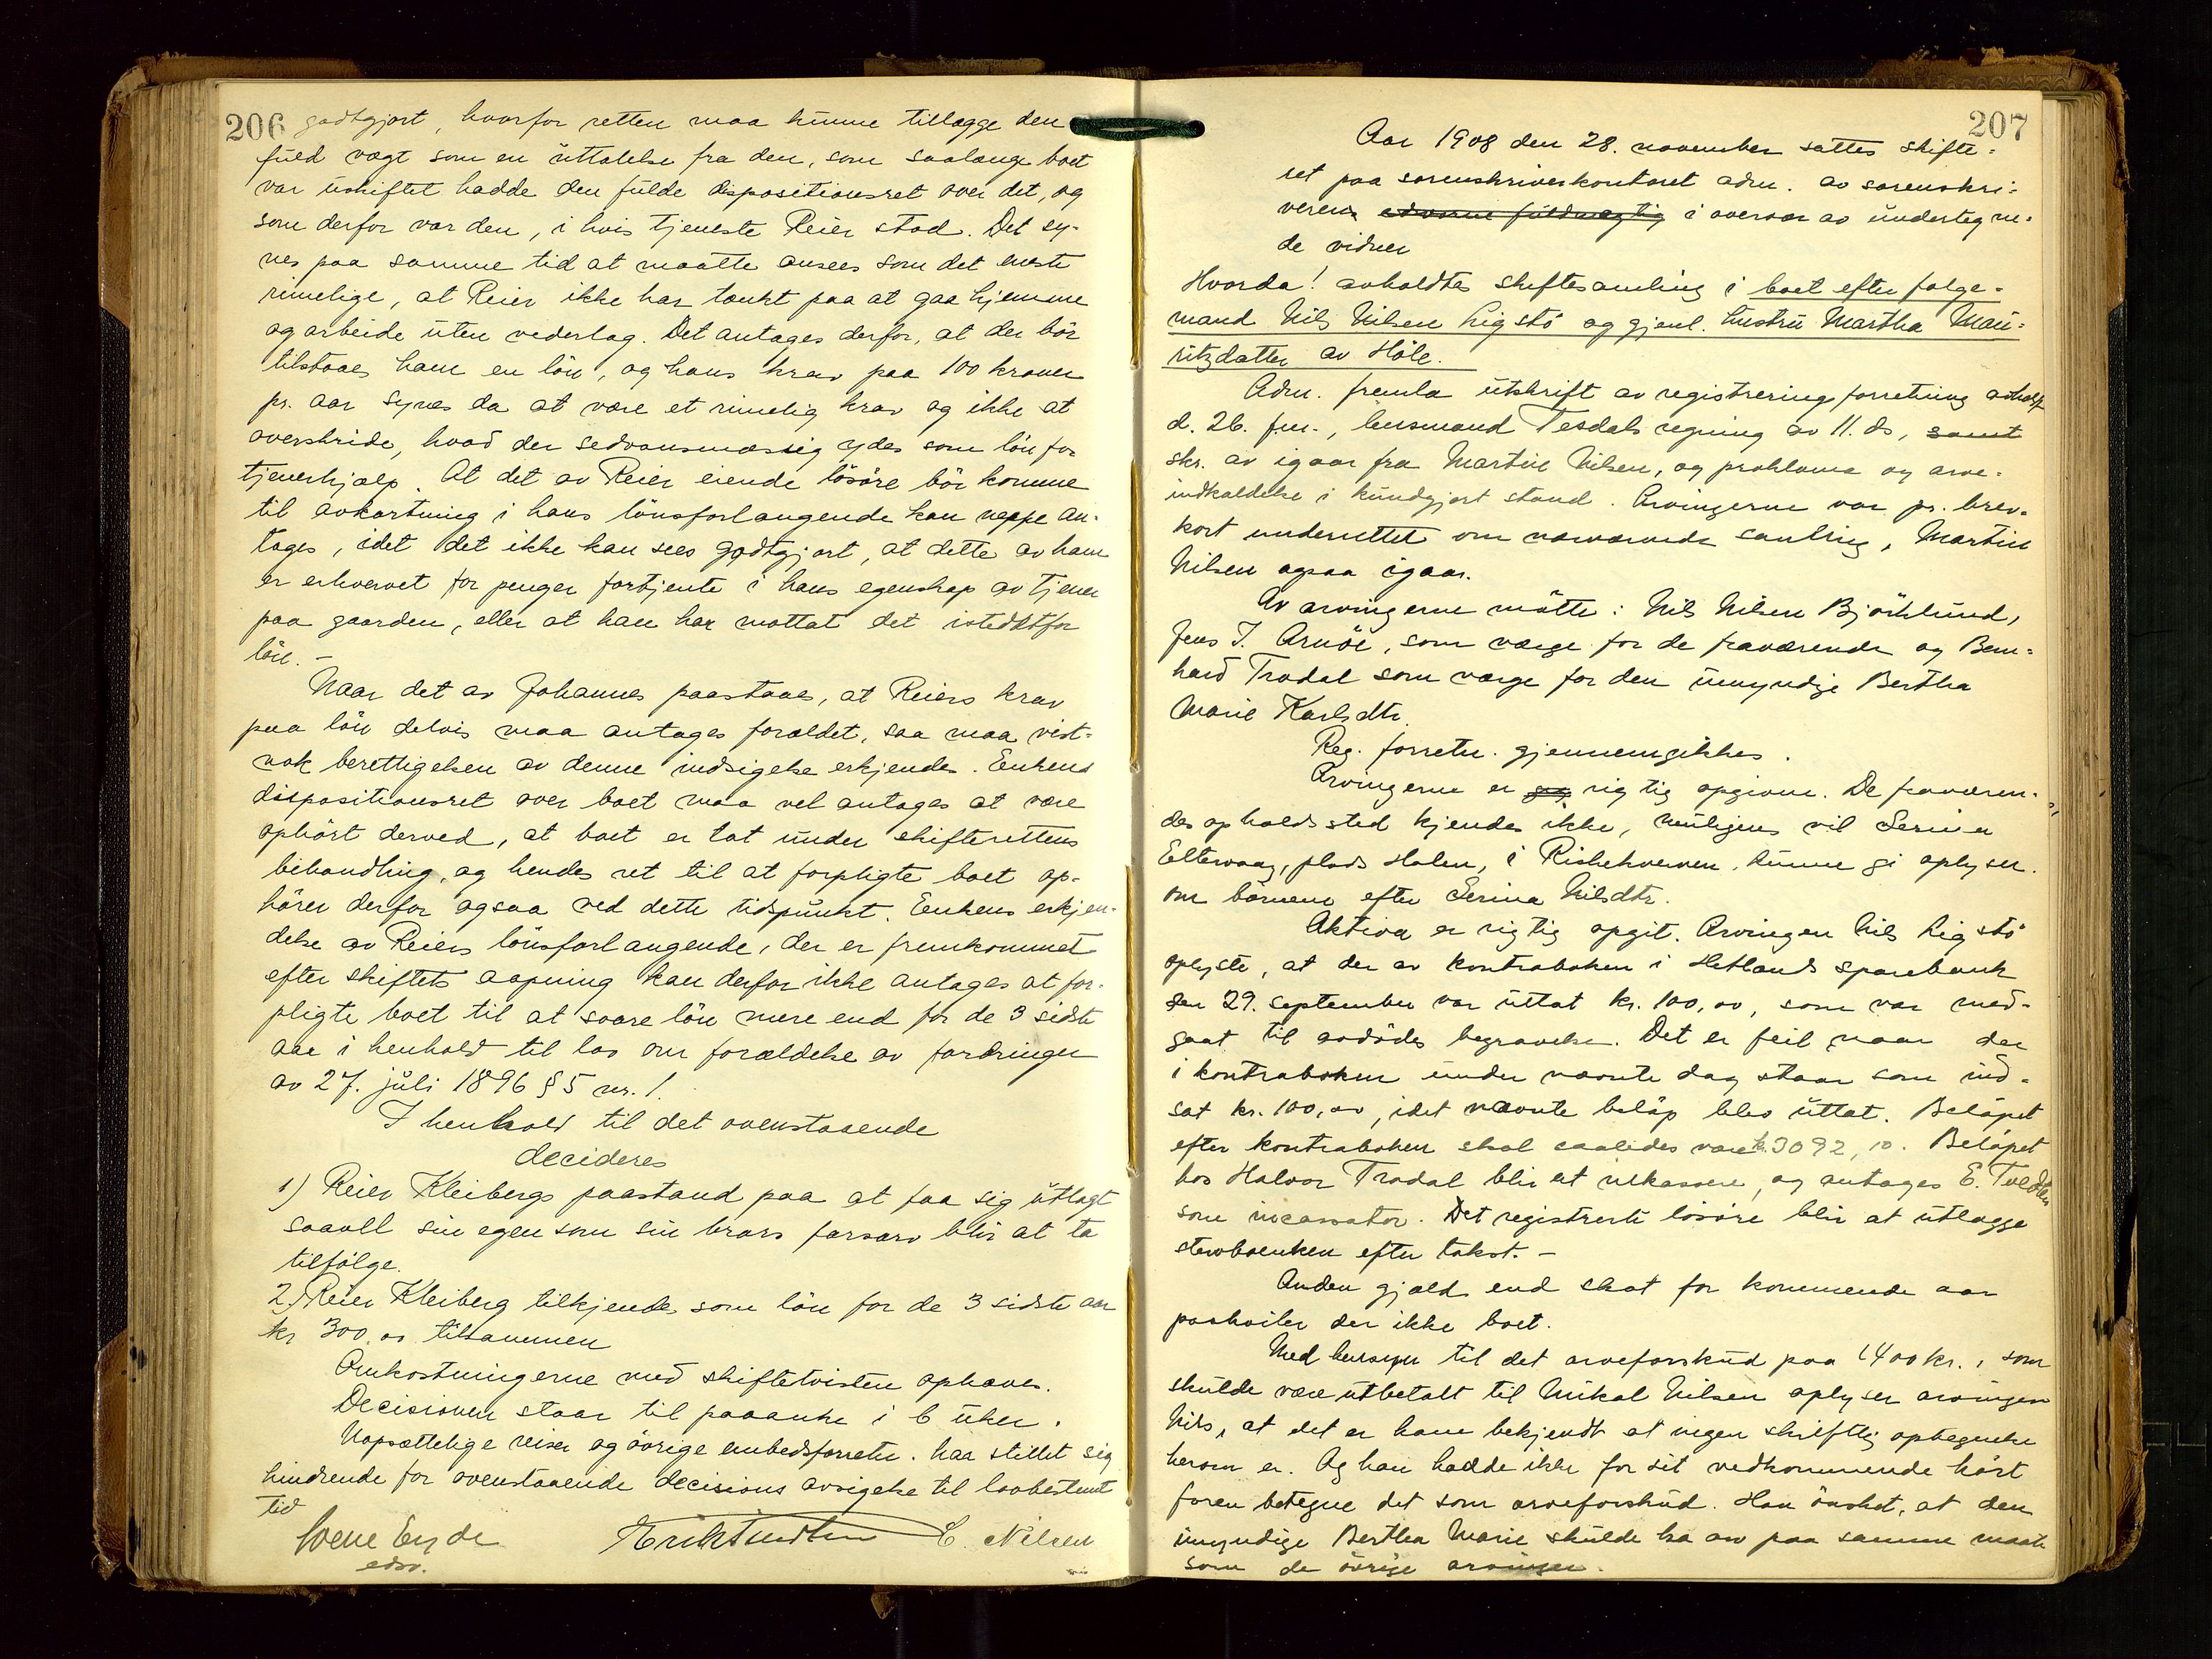 206
godtgjort, hvorfor retten maa kunne tillægge den
fuld vægt som en uttalelse fra den, som saalænge boet
var uskiftet hadde den fulde dispositionsret over det, og
som derfor var den, i hvis tjeneste Reier stod. Det sy-
nes paa samme tid at maatte ansees som det mest
rimelige, at Reier ikke har tænkt paa at gaa hjemme
og arbeide uten vederlag. Det antages derfor, at der bör
tilstaaes ham en lön, og hans krav paa 100 kroner
pr. aar synes da at være et rimelig krav og ikke at
overskride, hvad der sedvansmæssig ydes som lön for
tjenerhjælp. At det av Reier eiende lösöre bör komme
til avkortning i hans lönsforlangende kan neppe an-
tages, idet det ikke kan sees godtgjort, at dette av ham
er erhvervet for penger fortjente i hans egenskap av tjener
paa gaarden, eller at han har mottat det istedetfor
lön. -
Naar det av Johannes paastaaes, at Reiers krav
paa lön delvis maa antages forældet, saa maa vist-
nok berettigelsen av denne indsigelse erkjendes. Enkens
dispositionsret over boet maa vel antages at være
ophört derved, at boet er tat under skifterettens
behandling, og hendes ret til at forpligte boet op-
hörer derfor ogsaa ved dette tidspunkt. Enkens erkjen-
delse av Reiers lönsforlangende, der er fremkommet
efter skiftets aapning kan derfor ikke antages at for-
pligte boet til at svare lön mere end for de 3 sidste
aar i henhold til lov om forældelse av fordringer
av 27. juli 1896 § 5 nr. 1.
I henhold til det ovenstaaende
decideres
1) Reier Kleibergs paastand paa at faa sig utlagt
saavell sin egen som sin brors farsarv blir at ta
tilfölge.
2) Reier Kleiberg tilkjendes som lön for de 3 sidste aar
kr 300,00 tilsammen
Omkostningerne ved skiftetvisten ophæves.
Decisionen staar til paaanke i 6 uker.
Uopsættelige reiser og övrige embedsforretn. har stillet sig
hindrende for ovenstaaende decisions avsigelse til lovbestemt
tid
Svene Eyde
edsv.
E. Nilsen
207
Aar 1908 den 28. november sattes skifte-
ret paa sorenskriverkontoret adm. av sorenskri-
veren edsvorne fuldmægtig i overvær av undertegne-
de vidner
Hvorda! avholdtes skiftesamling i boet efter følge-
mand Nils Nilsen Ligstö og gjenl. hustru Martha Mau-
ritzdatter av Höle.
Adm. fremla utskrift av registreringsforretning avholdt
d. 26. f.m., lensmand Tesdals regning av 11. ds, samt
skr. av igaar fra Martin Nilsen, og proklama og arve-
indkaldelse i kundgjort stand. Arvingerne var pr. brev-
kort underrettet om nærværende samling, Martin
Nilsen ogsaa igaar.
Av arvingerne mötte: Nils Nilsen Björklund,
Jens T. Arnöe, som værge for de fraværende og Bern-
hard Trodal som værge for den umyndige Bertha
Marie Karlsdtr.
Reg. forretn. gjennemgikkes.
Arvingerne er rigtig opgivne. De fraværen-
des opholdssted kjendes ikke, muligens vil Serina
Eltervaag, plads Holen, i Riskekverven, kunne gi oplysn.
om börnene efter Serina Nilsdtr.
Aktiva er rigtig opgit. Arvingen Nils Ligstö
oplyste, at der av kontraboken i Hetlands sparebank
den 29. september var uttat kr. 100,00, som var med-
gaat til avdödes begravelse. Det er feil naar der
i kontraboken under nævnte dag staar som ind-
sat kr. 100,00, idet nævnte belöp blev uttat. Belöpet
efter kontraboken skal saaledes være k. 3092,10. Belöpet
hos Halvor Trodal blir at inkassere, og antages E. Tvedten
som incassator. Det registrerte lösöre blir at utlægge
stervboenken efter takst. -
Anden gjæld end skat for kommende aar
paahviler der ikke boet.
Med hensyn til det arveforskud paa 1400 kr., som
skulde være utbetalt til Mikal Nilsen oplyser arvingen
Nils, at det er ham bekjendt at ingen skriftlig optegnelse
herom er. Og han hadde ikke for sit vedkommende hört
faren betegne det som arveforskud. Han önsket, at den
umyndige Bertha Marie skulde ha arv paa samme maate
som de övrige arvinger.